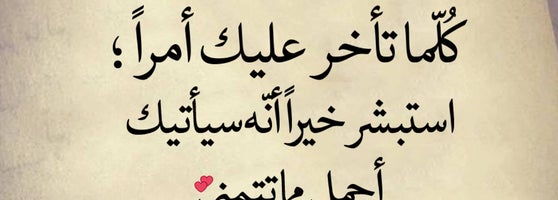 كُلّما تأخر عليك أمراً ؛
استبشر خيراً أنّه سيأتيك
أجمل ماتتمنى 💕